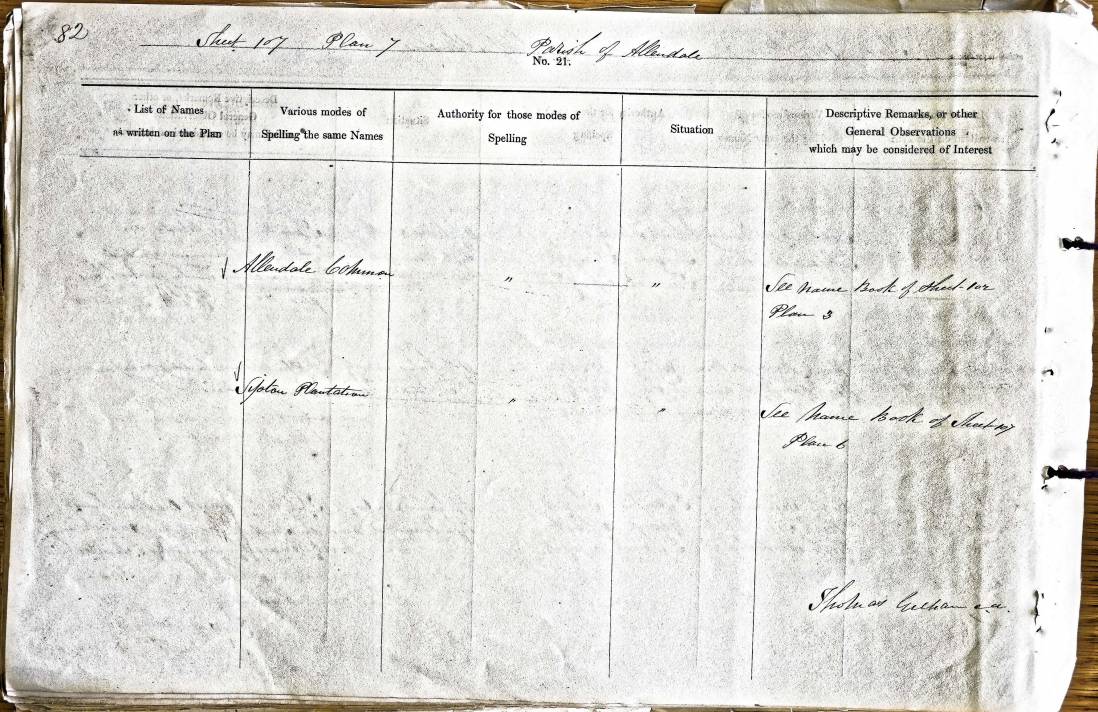 82
Sheet 107 Plan 7 Parish of Allendale
No. 21.
List of Names
as written on the Plan
Various modes of
Spelling the same Names
Authority for those modes of
Spelling
Situation
Descriptive Remarks, or other
General Observations
which may be considered of Interest
Allendale Common " " See Name Book of Sheet 102
Plan 3
Sipton Plantation " " See Name Book of Sheet 107
Plan 6
Thomas c.a.